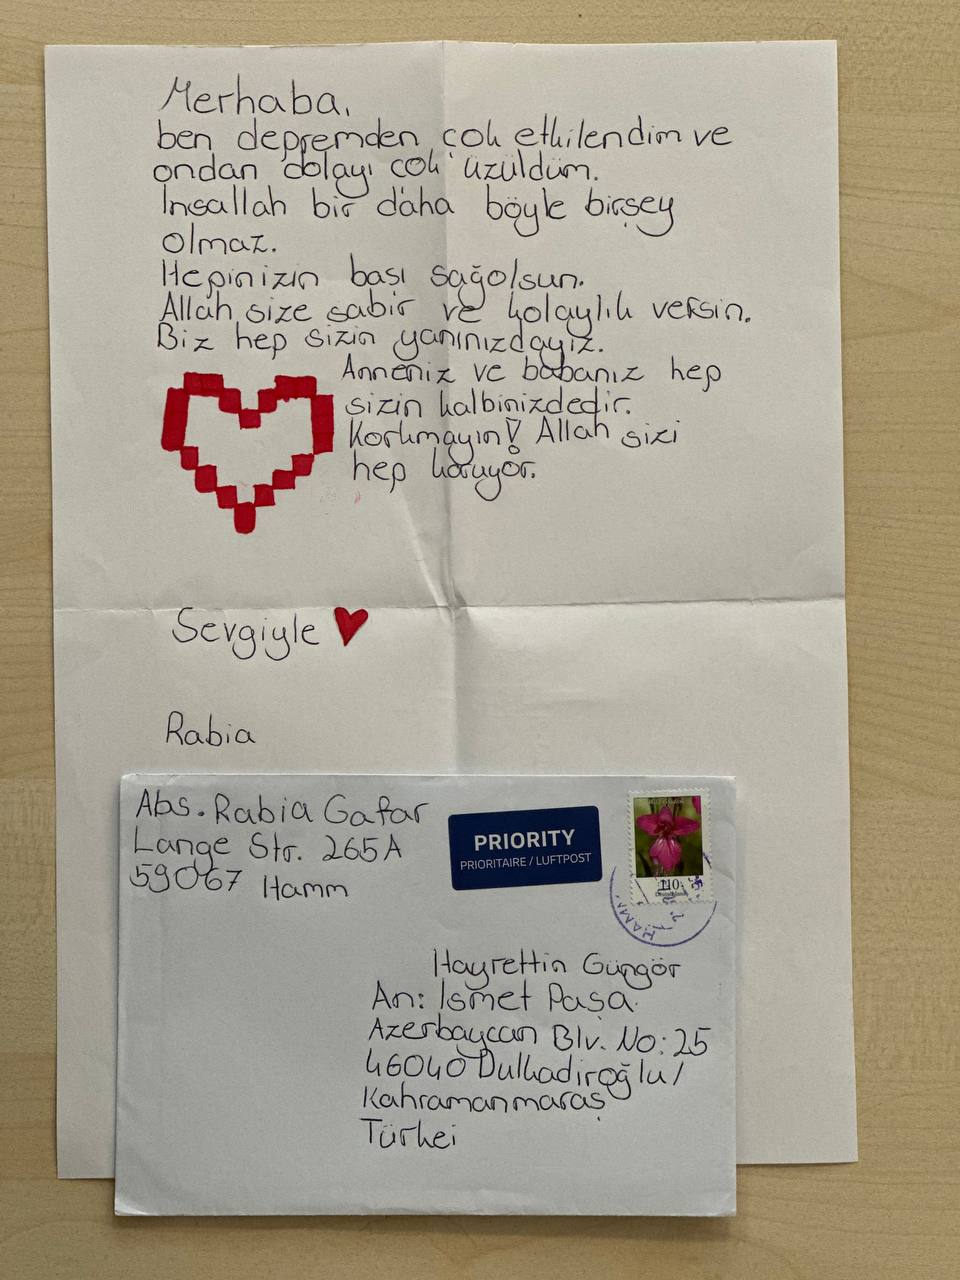 Merhaba,
ben depremden çok etkilendim ve
ondan dolayı çok üzüldüm.
Inşallah bir daha böyle birşey
olmaz.
Hepinizin bası sağolsun.
Allah size sabir ve kolaylık versin.
Biz hep sizin yanınızdayız.
Anneniz ve babanız hep
sizin kalbinizdedir.
Korkmayın! Allah sizi
hep koruyor.
Sevgiyle
Rabia
Abs. Rabia Gafar
Lange Str. 265A
59067 Hamm
PRIORITY
PRIORITAIRE / LUFTPOST
110
Hayrettin Güngör
An: Ismet Paşa
Azerbaycan Blv. No: 25
46040 Dulkadiroğlu/
Kahramanmaraş
Türkei